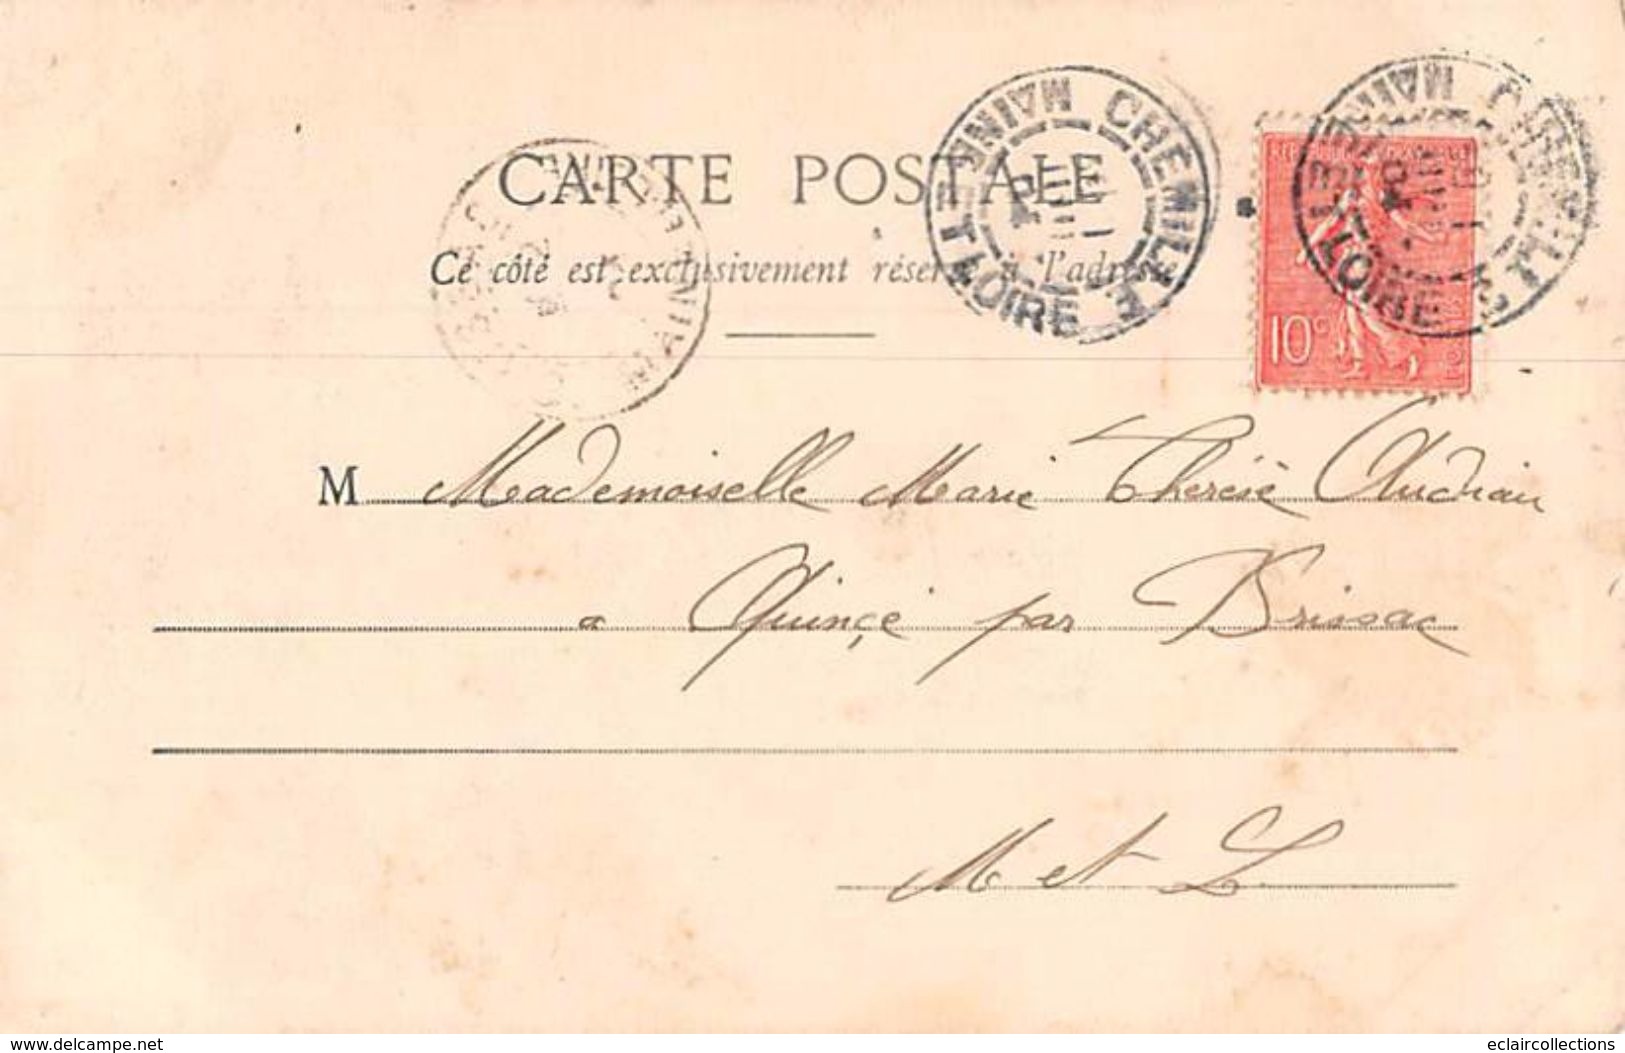 CARTE POSTALE
Ce côté est exclusivement réservé à l'adresse
CHEMILLÉ
MAINE ET LOIRE
CHEMILLÉ
MAINE ET LOIRE
10c
M Mademoiselle Marie Thérèse Audiau
a Quincé par Brissac
M et L
www.delcampe.net
eclaircollections